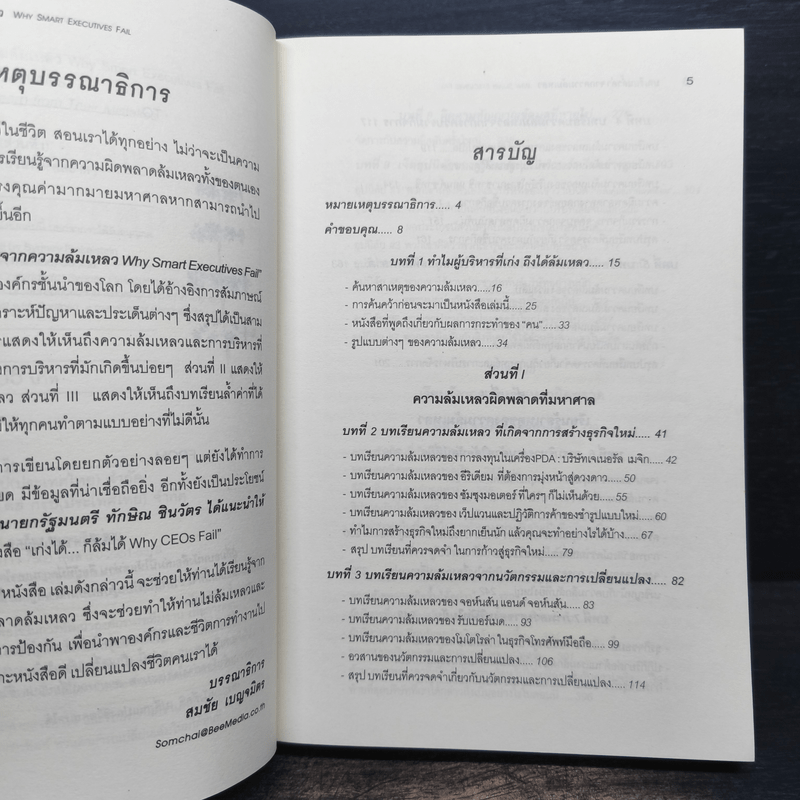 WHY SMART EXECUTIVES FAIL
หตุบรรณาธิการ
ในชีวิต สอนเราได้ทุกอย่าง ไม่ว่าจะเป็นความ
รเรียนรู้จากความผิดพลาดล้มเหลวทั้งของตนเอง
รงคุณค่ามากมายมหาศาลหากสามารถนำไป
ขึ้นอีก
จากความล้มเหลว Why Smart Executives Fail"
องค์กรชั้นนำของโลก โดยได้อ้างอิงการสัมภาษณ์
คราะห์ปัญหาและประเด็นต่างๆ ซึ่งสรุปได้เป็นสาม
รแสดงให้เห็นถึงความล้มเหลวและการบริหารที่
งการบริหารที่มักเกิดขึ้นบ่อยๆ ส่วนที่ II แสดงให้
ลว ส่วนที่ III แสดงให้เห็นถึงบทเรียนล้ำค่าที่ได้
ให้ทุกคนทำตามแบบอย่างที่ไม่ดีนั้น
การเขียนโดยยกตัวอย่างลอยๆ แต่ยังได้ทำการ
ยด มีข้อมูลที่น่าเชื่อถือยิ่ง อีกทั้งยังเป็นประโยชน์
นายกรัฐมนตรี ทักษิณ ชินวัตร ได้แนะนำให้
สือ "เก่งได้... ก็ล้มได้ Why CEOs Fail"
หนังสือ เล่มดังกล่าวนี้ จะช่วยให้ท่านได้เรียนรู้จาก
ลาดล้มเหลว ซึ่งจะช่วยทำให้ท่านไม่ล้มเหลวและ
การป้องกัน เพื่อนำพาองค์กรและชีวิตการทำงานไป
าะหนังสือดี เปลี่ยนแปลงชีวิตคนเราได้
บรรณาธิการ
สมชัย เบญจมิตร
Somchai@BeeMedia.co.th
5
สารบัญ
หมายเหตุบรรณาธิการ..... 4
คำขอบคุณ..... 8
บทที่ 1 ทำไมผู้บริหารที่เก่ง ถึงได้ล้มเหลว..... 15
- ค้นหาสาเหตุของความล้มเหลว.....16
- การค้นคว้าก่อนจะมาเป็นหนังสือเล่มนี้..... 25
- หนังสือที่พูดถึงเกี่ยวกับผลการกระทำของ "คน"..... 33
- รูปแบบต่างๆ ของความล้มเหลว..... 34
ส่วนที่ I
ความล้มเหลวผิดพลาดที่มหาศาล
บทที่ 2 บทเรียนความล้มเหลว ที่เกิดจากการสร้างธุรกิจใหม่..... 41
- บทเรียนความล้มเหลวของ การลงทุนในเครื่องPDA : บริษัทเจเนอรัล เมจิก..... 42
- บทเรียนความล้มเหลวของ อิริเดียม ที่ต้องการมุ่งหน้าสู่ดวงดาว..... 50
- บทเรียนความล้มเหลวของ ซัมซุงมอเตอร์ ที่ใครๆ ก็ไม่เห็นด้วย..... 55
- บทเรียนความล้มเหลวของ เว็ปแวนและปฏิวัติการค้าของชำรูปแบบใหม่..... 60
- ทำไมการสร้างธุรกิจใหม่ถึงยากเย็นนัก แล้วคุณจะทำอย่างไรได้บ้าง..... 67
- สรุป บทเรียนที่ควรจดจำ ในการก้าวสู่ธุรกิจใหม่..... 79
บทที่ 3 บทเรียนความล้มเหลวจากนวัตกรรมและการเปลี่ยนแปลง..... 82
- บทเรียนความล้มเหลวของ จอห์นสัน แอนด์ จอห์นสัน..... 83
- บทเรียนความล้มเหลวของ รับเบอร์เมด..... 93
- บทเรียนความล้มเหลวของโมโตโรล่า ในธุรกิจโทรศัพท์มือถือ..... 99
- อวสานของนวัตกรรมและการเปลี่ยนแปลง..... 106
- สรุป บทเรียนที่ควรจดจำเกี่ยวกับนวัตกรรมและการเปลี่ยนแปลง..... 114